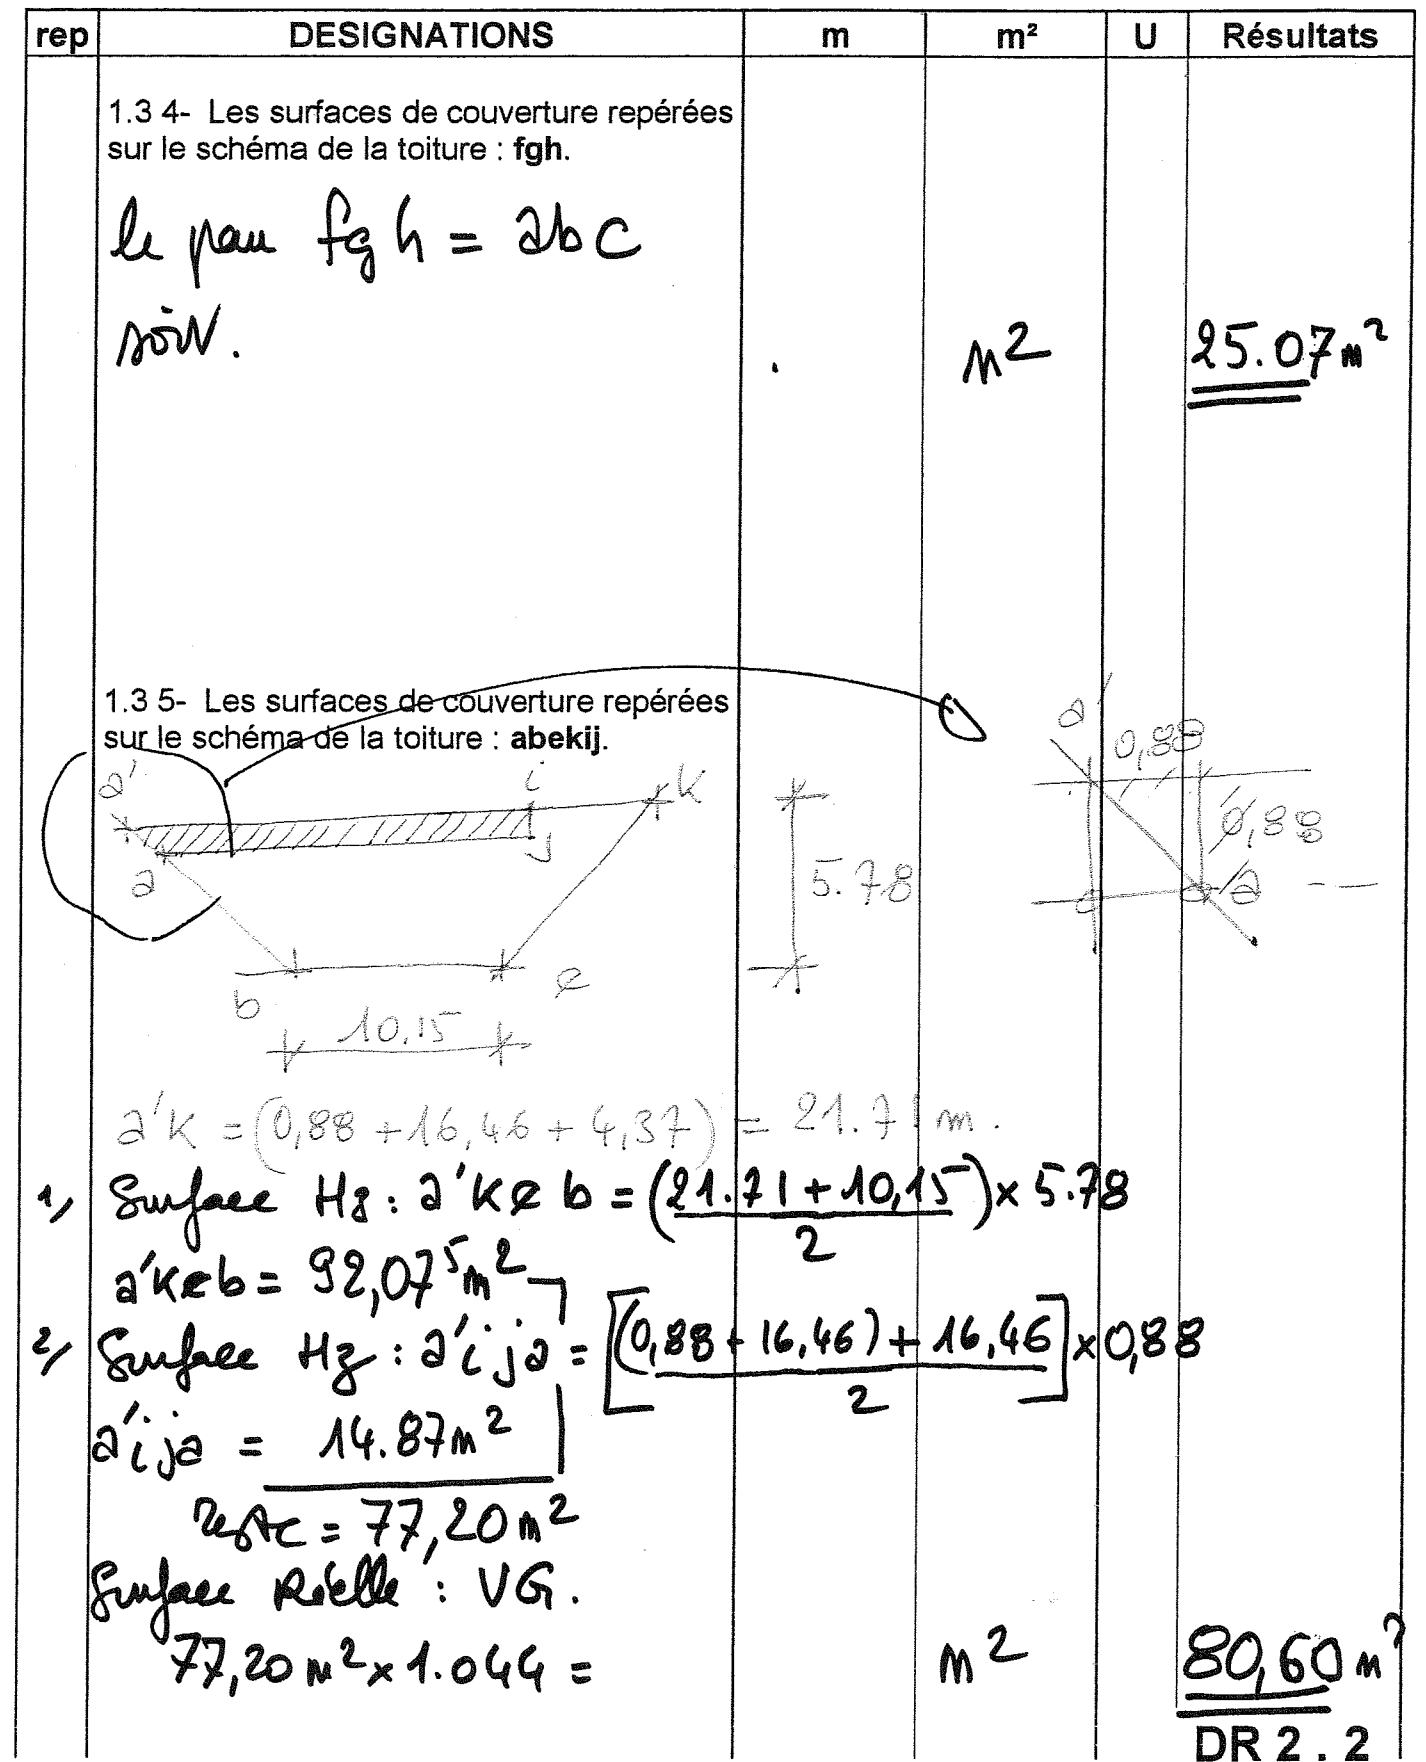 rep DESIGNATIONS m m² U Résultats
1.3 4- Les surfaces de couverture repérées
sur le schéma de la toiture : fgh.
le pan fgh = abc
soit. m² 25.07m²
1.3 5- Les surfaces de couverture repérées
sur le schéma de la toiture : abekij.
a' i k
a j
b e
10,15
5.78
a' 0,88
0,88
a
a'k = (0,88 + 16,46 + 4,37) = 21.71 m.
1, Surface Hz : a'keb = (21.71 + 10,15) x 5.78
2
a'keb = 92,07⁵m²
2, Surface Hz : a'ija = [(0,88 + 16,46) + 16,46] x 0,88
2
a'ija = 14.87m²
reste = 77,20 m²
Surface Réelle : VG.
77,20 m² x 1.044 = m² 80,60 m²
DR 2 . 2